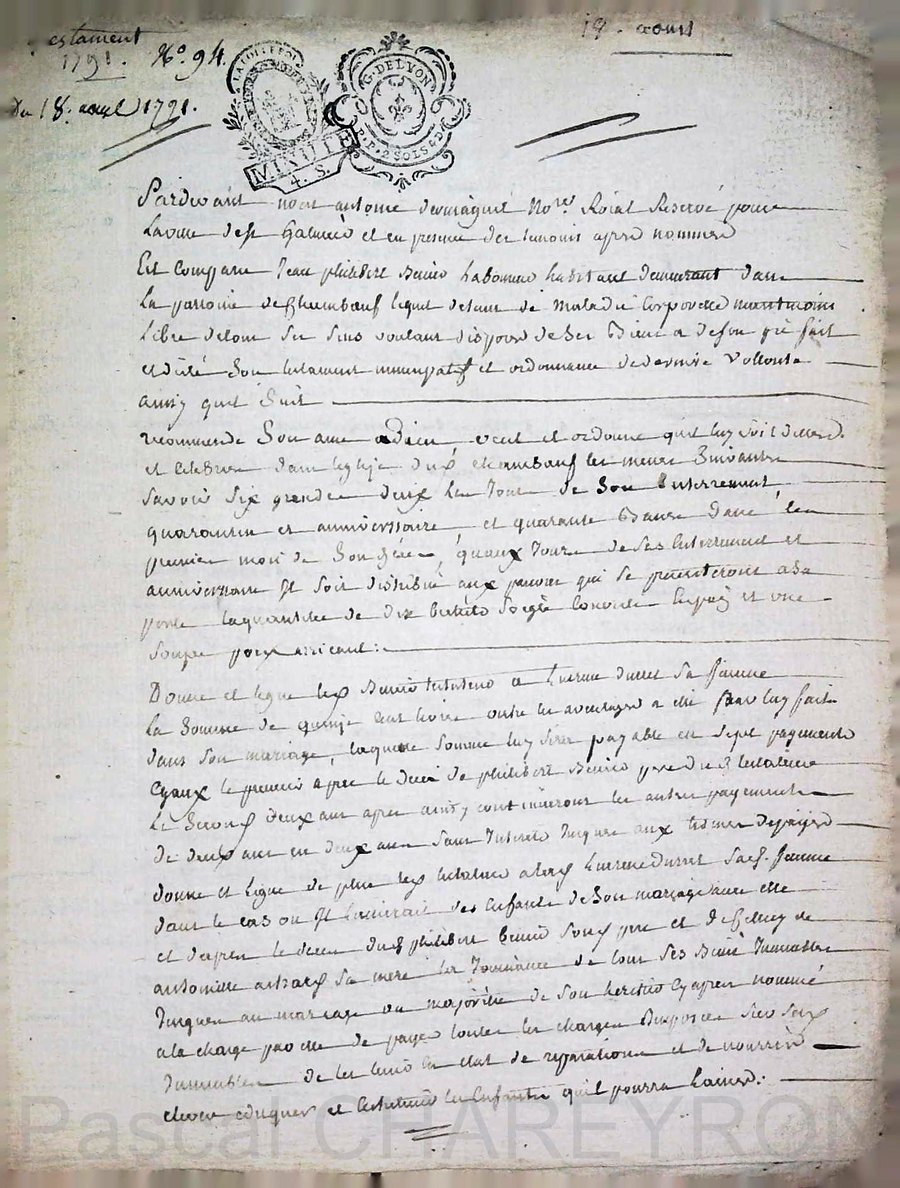 estament
1791. No. 94
Du 18e avril 1791.
19 aoust
LA COLLE
MINUTE
4. S.
G. DE LYON
P.P. 2 SOLS 4 D
Pardevant nous antoine Not.re Roial Reservé pour
La ville de St Galmier et en presence des temoins apres nommes
Est Comparu Jean philibert habitant demeurant dans
La parroisse de Chambœuf lequel detenu de maladie Corporelle neantmoins
Libre de tous ses sens voulant disposer de ses Biens a de son gré fait
et dicté Son testament nuncupatif et ordonnance de derniere vollonte
ainsy quil suit
recommande Son ame a Dieu veut et ordonne quil luy soit
et celebrer dans leglise dud. chambœuf les messes Suivantes
savoir six grandes deux les Jour de Son Enterrement
quarantin et anniversaire et quarante Basses dans les
premier mois de Son decès, quaux Jours de ses Enterrement et
anniversaire Il soit distribué aux pauvres qui se presenteront a sa
porte la quantitée de dix en pain et une
soupe pour
Donne et legue led. testateur a sa femme
La Somme de quinze Cent livres outre les avantages a elle par luy fait
dans son mariage, laquelle somme luy sera payable en sept payements
Egaux le premier apres le decès de philibert pere dud. testateur
Le Second deux ans apres ainsy continueront les autres payements
de deux ans en deux ans sans Interets Jusques aux termes
donne et legue de plus led. testateur a lad. sad. femme
dans le cas ou Il Laisserait des Enfants de Son mariage avec elle
et dapres le decès dud. philibert Son pere et de Celluy de
antoinette sa mere la Jouissance de tous ses Biens Immeubles
Jusques au mariage ou majorité de Son heritier Cy apres nommé
a la charge par elle de payer toutes les charges Imposées sur ses
Immeubles de les tenir en etat de reparations et de nourrir
elever eduquer et entretenir les Enfants quil pourra Laisser:
Pascal CHAREYRON